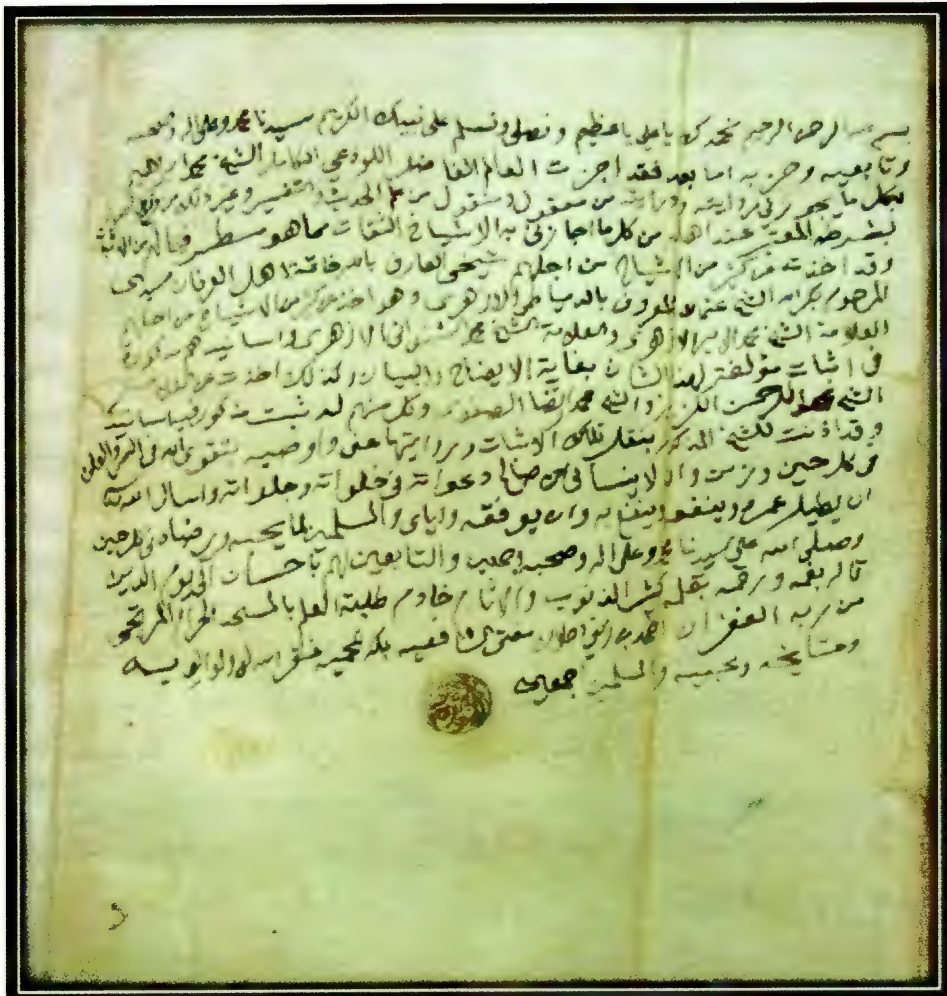 بسم الله الرحمن الرحيم نحمدك يا علي يا عظيم ونصلي ونسلم على نبيك الكريم سيدنا محمد وعلى اله وصحبه
وتابعيه وحزبه اما بعد فقد اجزت العالم الفاضل اللوذعي الكامل الشيخ محمد
بكل ما يجوز لي روايته ودرايته من معقول ومنقول من علم الحديث والتفسير وغير ذلك
بشرطه المعتبر عند اهله من كل ما اجازني به الاشياخ الثقات مما هو مسطر
وقد اخذت عن كثير من الاشياخ من اجلهم شيخي العارف بالله خاتمة اهل العرفان سيدي
المرحوم بكرم الله الشيخ عثمان المعروف بالدمياطي الازهري وهو اخذ عن كثير من الاشياخ من اجلهم
العلامة الشيخ محمد الامير الازهري والعلامة الشيخ محمد الشنواني الازهري واسانيدهم مذكورة
في اثبات مؤلفة لهذا الشان بغاية الايضاح والبيان وكذلك اخذت عن
الشيخ عبد الرحمن الكزبري والشيخ محمد وكل منهم له ثبت مذكور فيه
وقد اذنت للشيخ المذكور بنقل تلك الاثبات وروايتها عني واوصيه بتقوى الله في السر والعلن
في كل حين وزمن وان لا ينساني من صالح دعواته في خلواته وجلواته واسال الله
ان يطيل عمره وينفعه وينفع به وان يوفقه واياي والمسلمين لما يحبه ويرضاه في كل حين
وصلى الله على سيدنا محمد وعلى اله وصحبه والتابعين لهم باحسان الى يوم الدين
قاله بفمه ورقمه بقلمه كثير الذنوب والاثام خادم طلبة العلم بالمسجد الحرام المرتجي
من ربه الغفران احمد بن زيني دحلان مفتي الشافعية بمكة المحمية غفر الله له ولوالديه
ومشايخه ومحبيه والمسلمين اجمعين